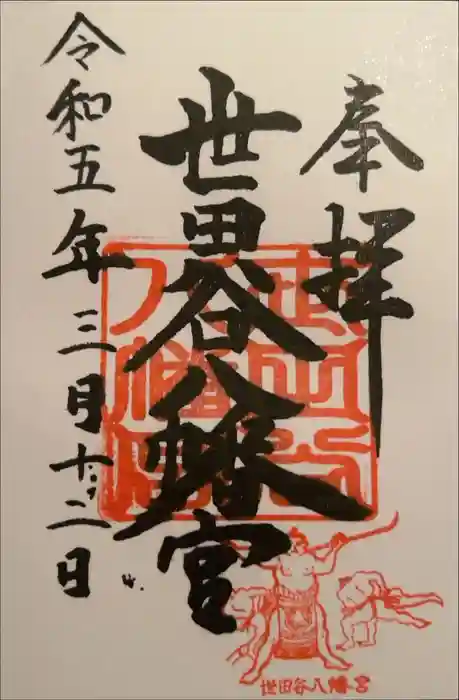 奉拝
世田谷八幡宮
令和五年三月十二日
世田谷八幡宮